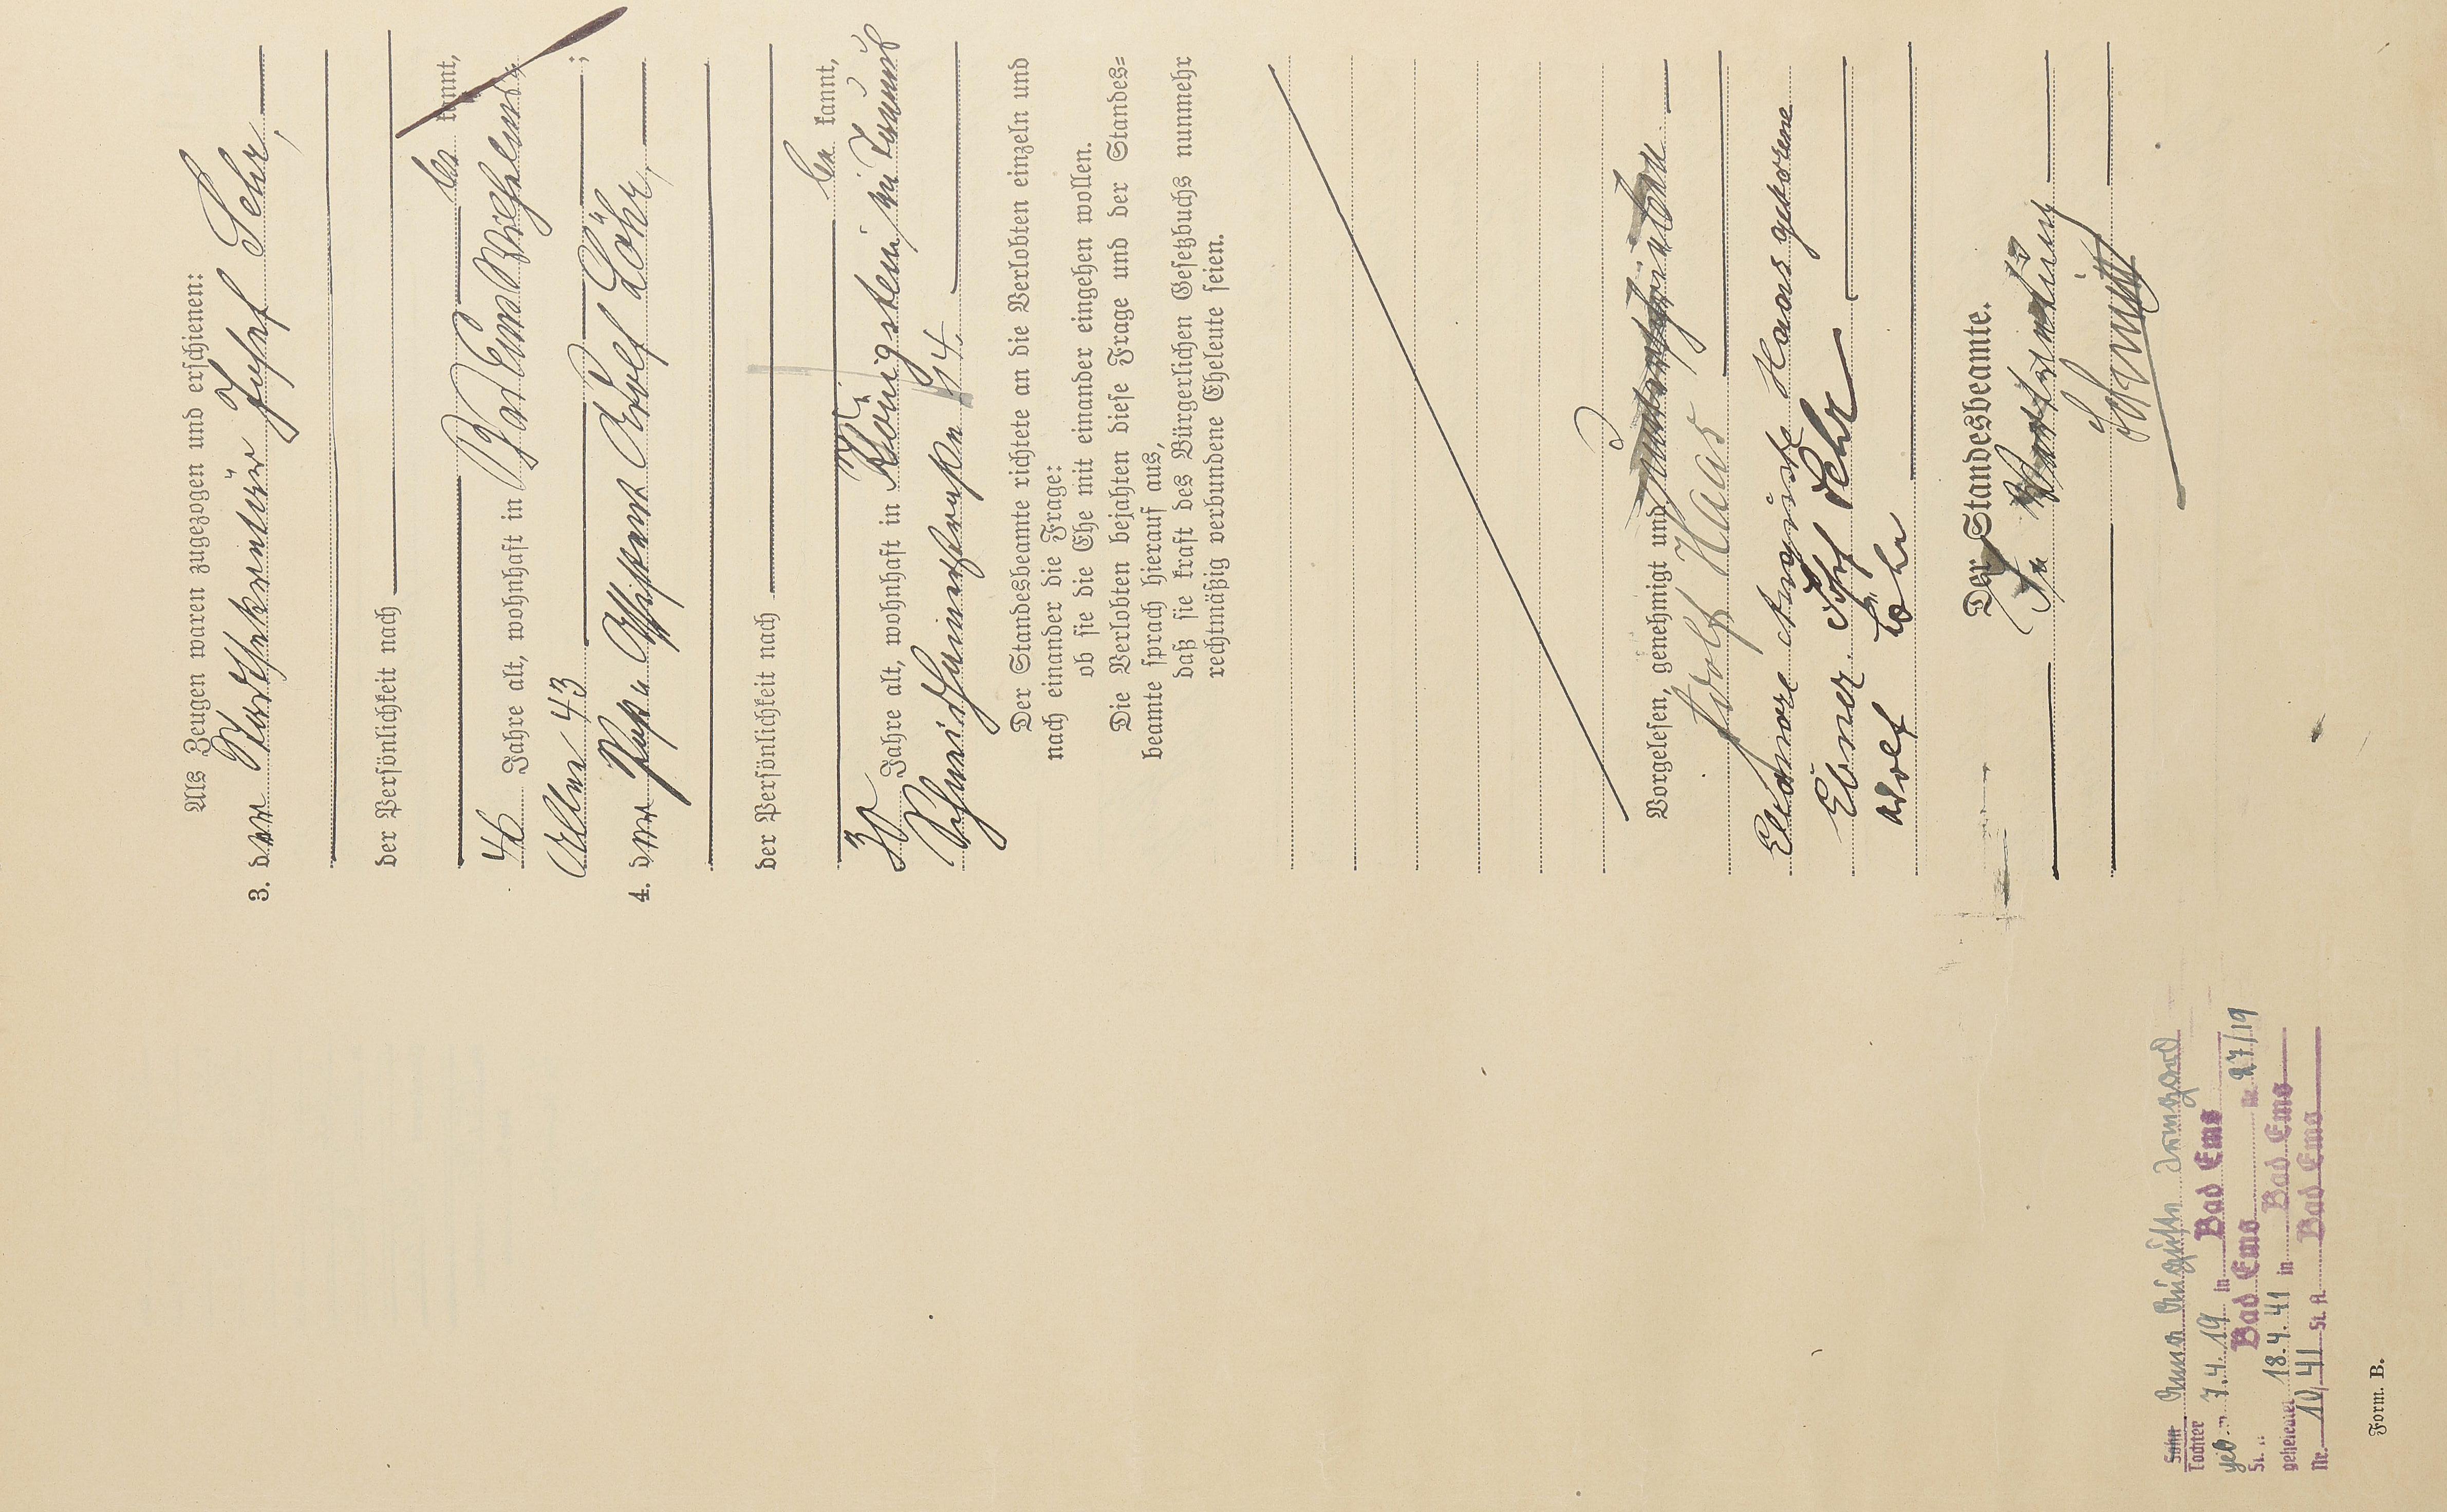 Als Zeugen waren zugezogen und erschienen:
3. der Stadtsekretär Josef Lehr,
der Persönlichkeit nach
be kannt,
46 Jahre alt, wohnhaft in Bad Ems Wilhelms-
Allee 43 ;
4. der Post Assistent Adolf Löhr,
der Persönlichkeit nach
be kannt,
30 Jahre alt, wohnhaft in Königstein im Taunus
Schneidhainerstraße 14.
Der Standesbeamte richtete an die Verlobten einzeln und
nach einander die Frage:
ob sie die Ehe mit einander eingehen wollen.
Die Verlobten bejahten diese Frage und der Standes-
beamte sprach hierauf aus,
daß sie kraft des Bürgerlichen Gesetzbuchs nunmehr
rechtmäßig verbundene Eheleute seien.
Vorgelesen, genehmigt und unterschrieben
Adolf Haas
Eleonore Auguste Haas geborene
Ebner. Josef Lehr
Adolf Löhr
Der Standesbeamte.
In Vertretung
Schmitt
Sohn
Tochter Anna Auguste Irmgard
geb. 7.4.19 in Bad Ems
St. Bad Ems Nr. 27/19
geheiratet 18.4.41 in Bad Ems
Nr. 10/41 St. A. Bad Ems
Form. B.